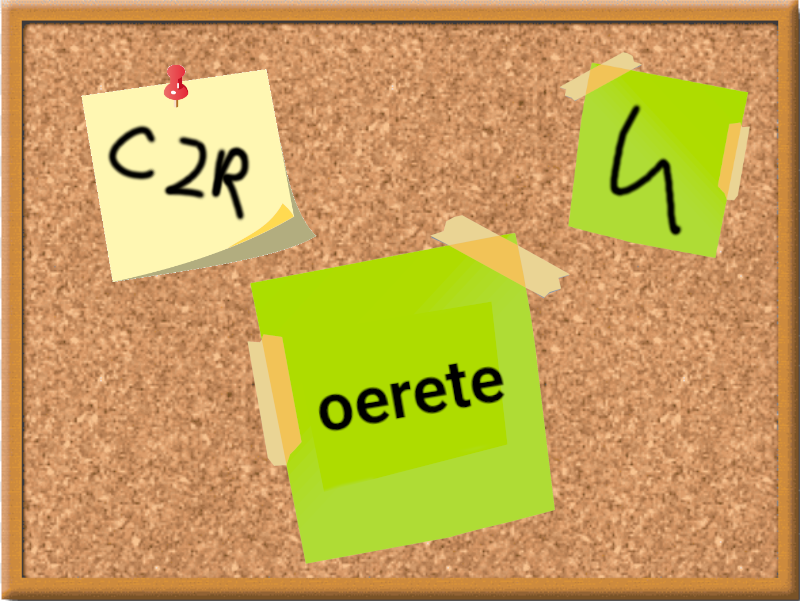 C2R
4
oerete